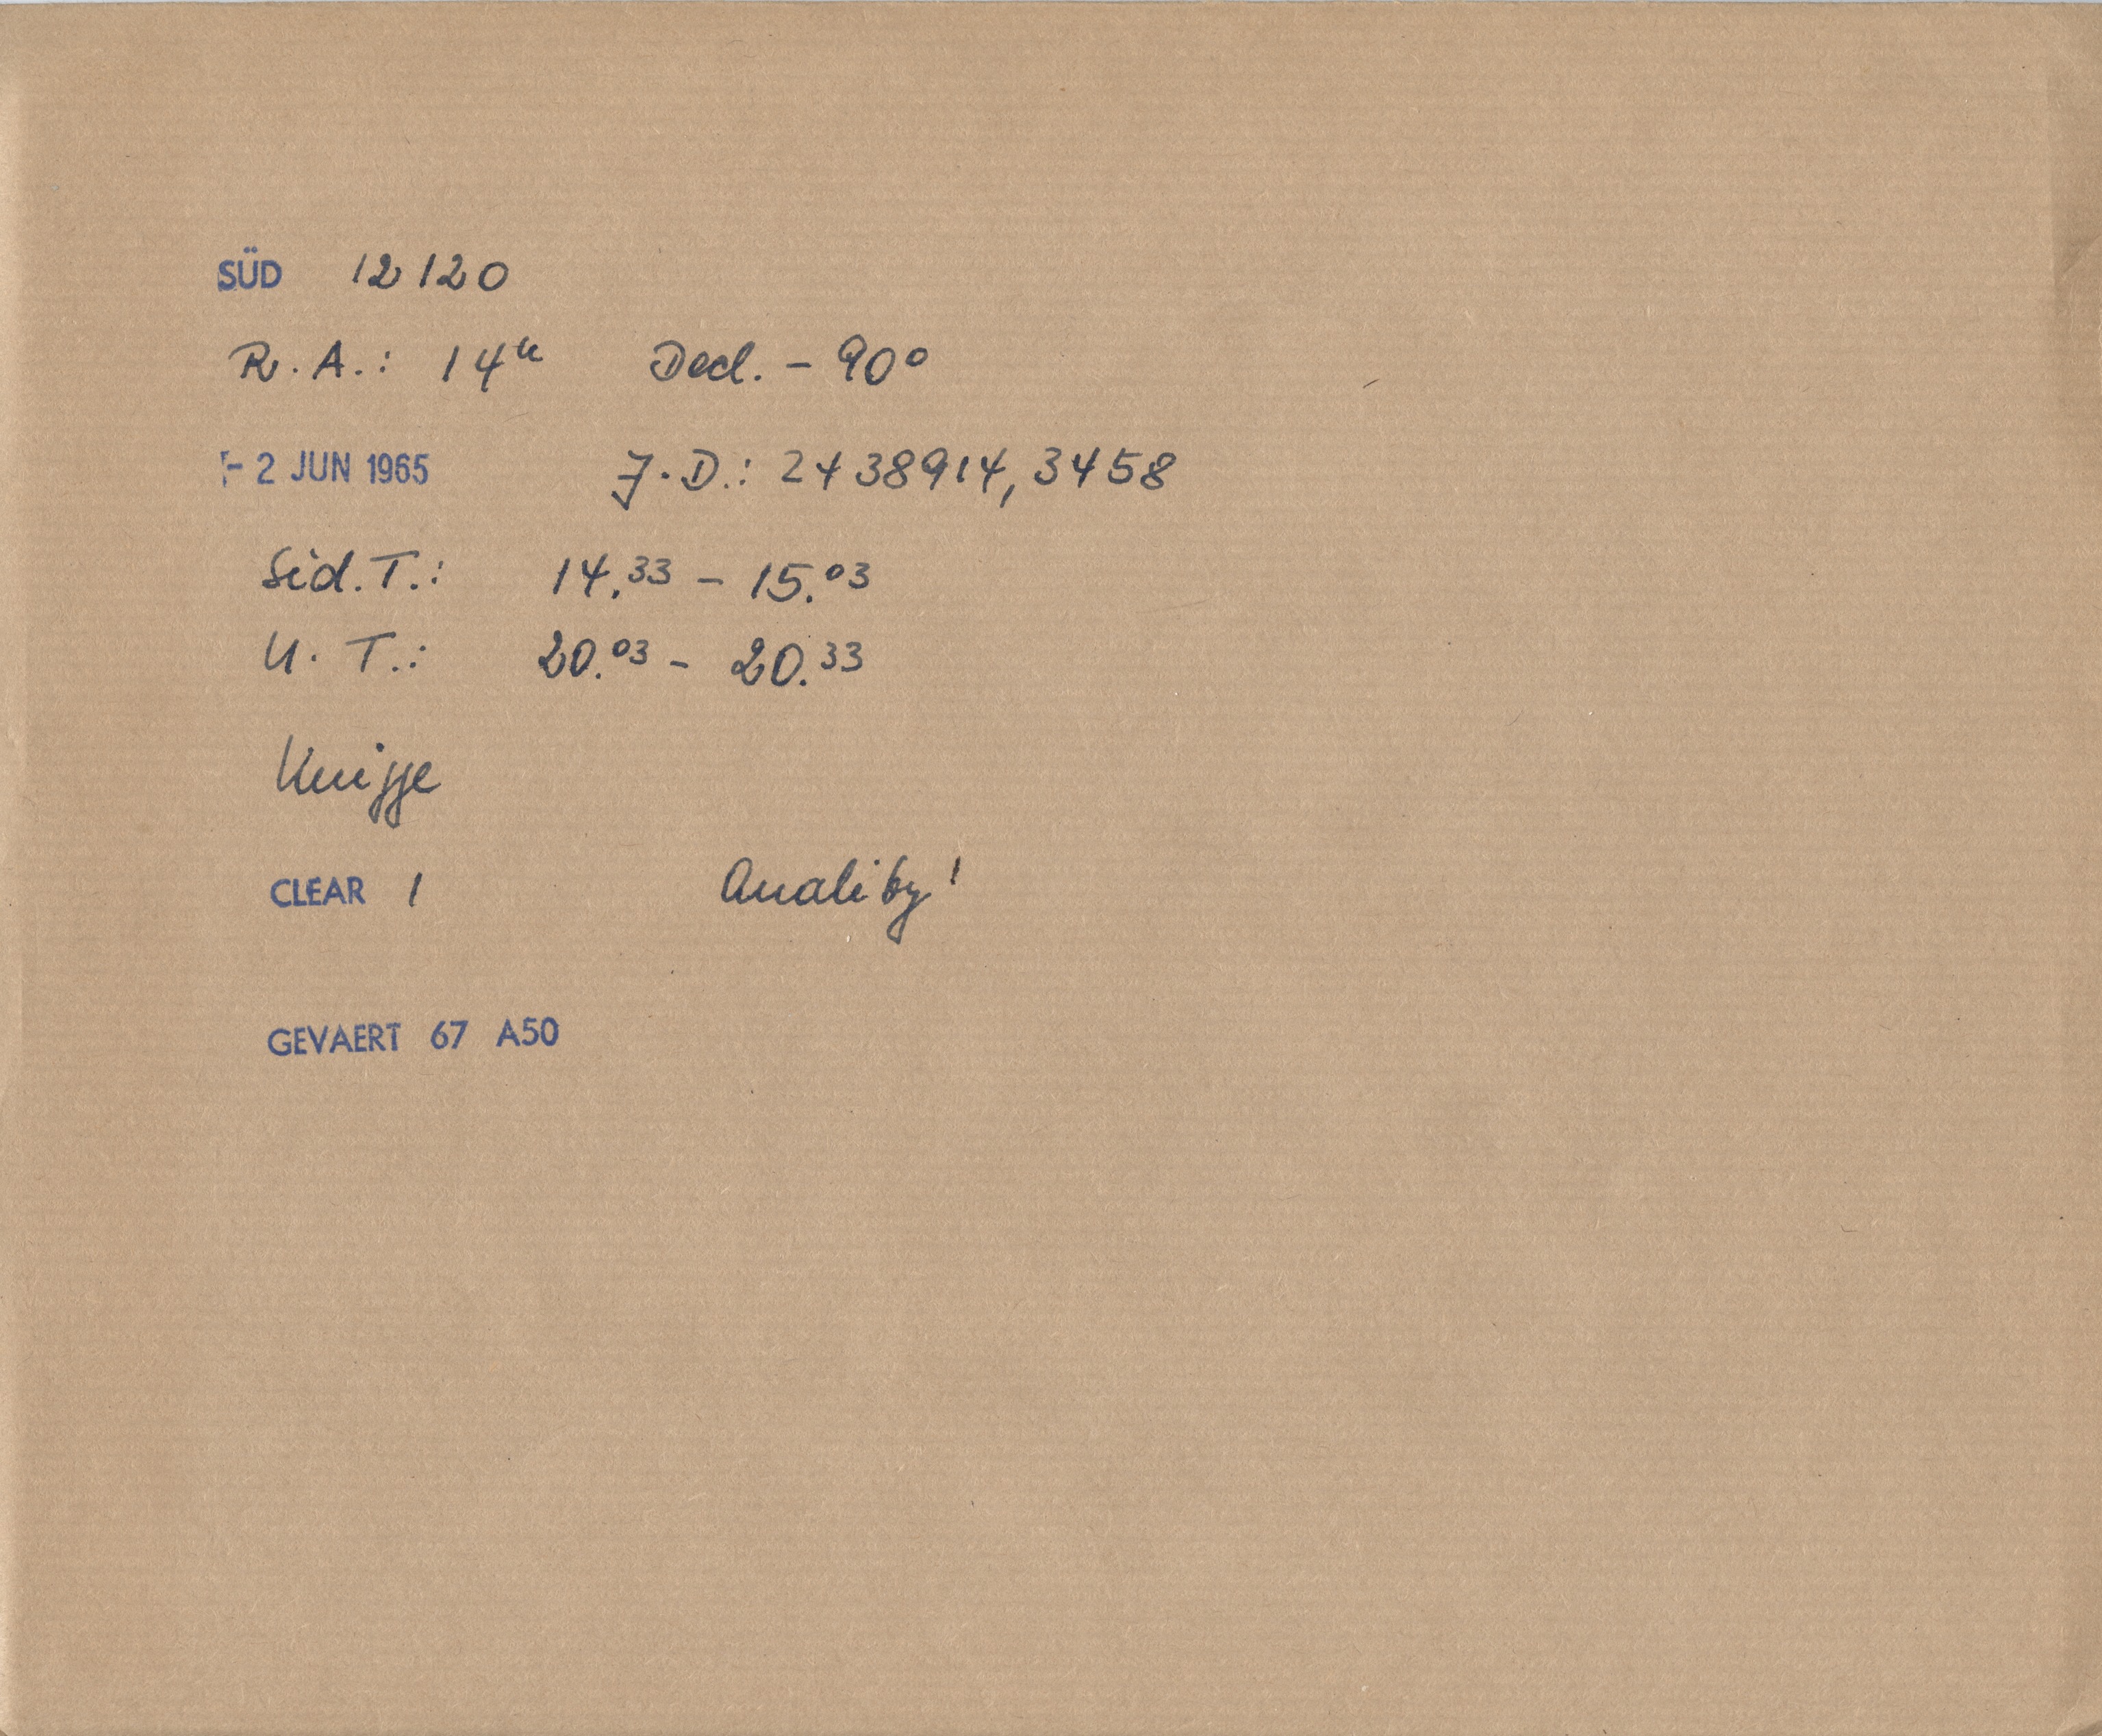 SÜD 12120
R.A.: 14ʰ Decl. - 90°
- 2 JUN 1965 J.D.: 2438914,3458
Sid.T.: 14.³³ - 15.⁰³
U.T.: 20.⁰³ - 20.³³
Knigge
CLEAR 1 Quality 1
GEVAERT 67 A50